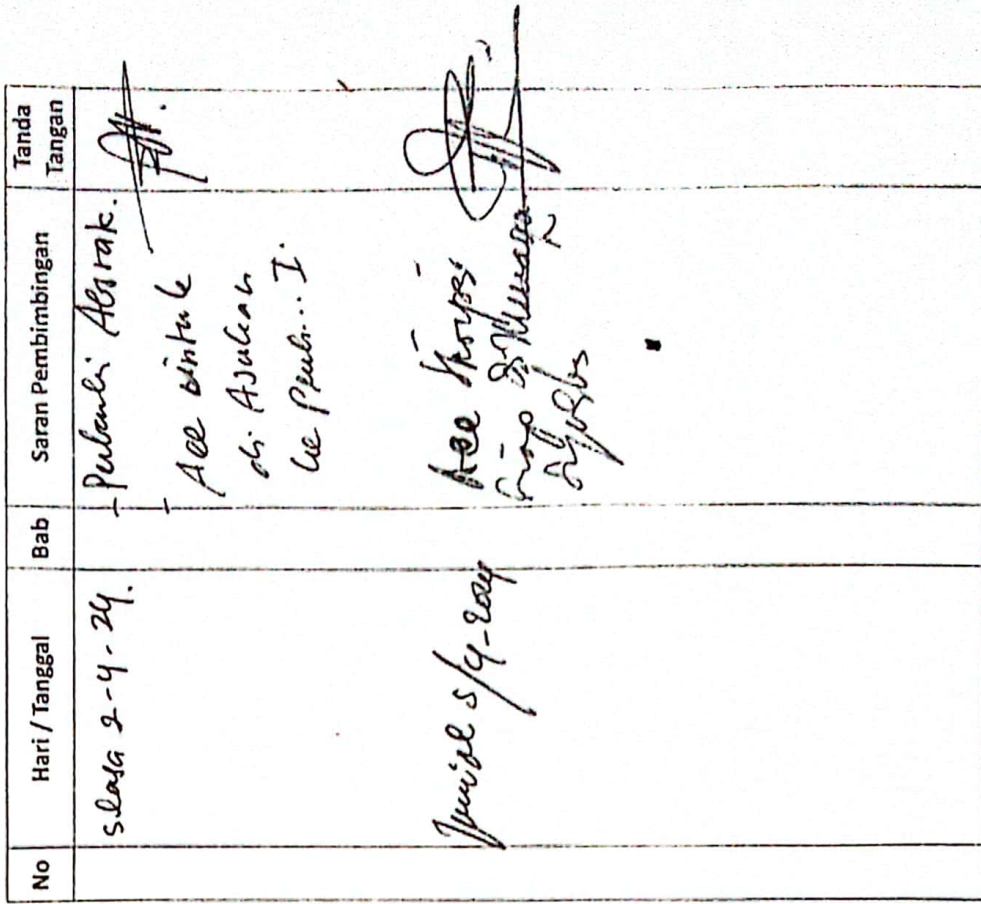 No Hari / Tanggal Bab Saran Pembimbingan Tanda Tangan
Slasa 2-4-24.
- Perbaiki Absrak.
- Acc untuk
di Ajukan
ke Pemb... I.
5/4-2024
Acc Skripsi